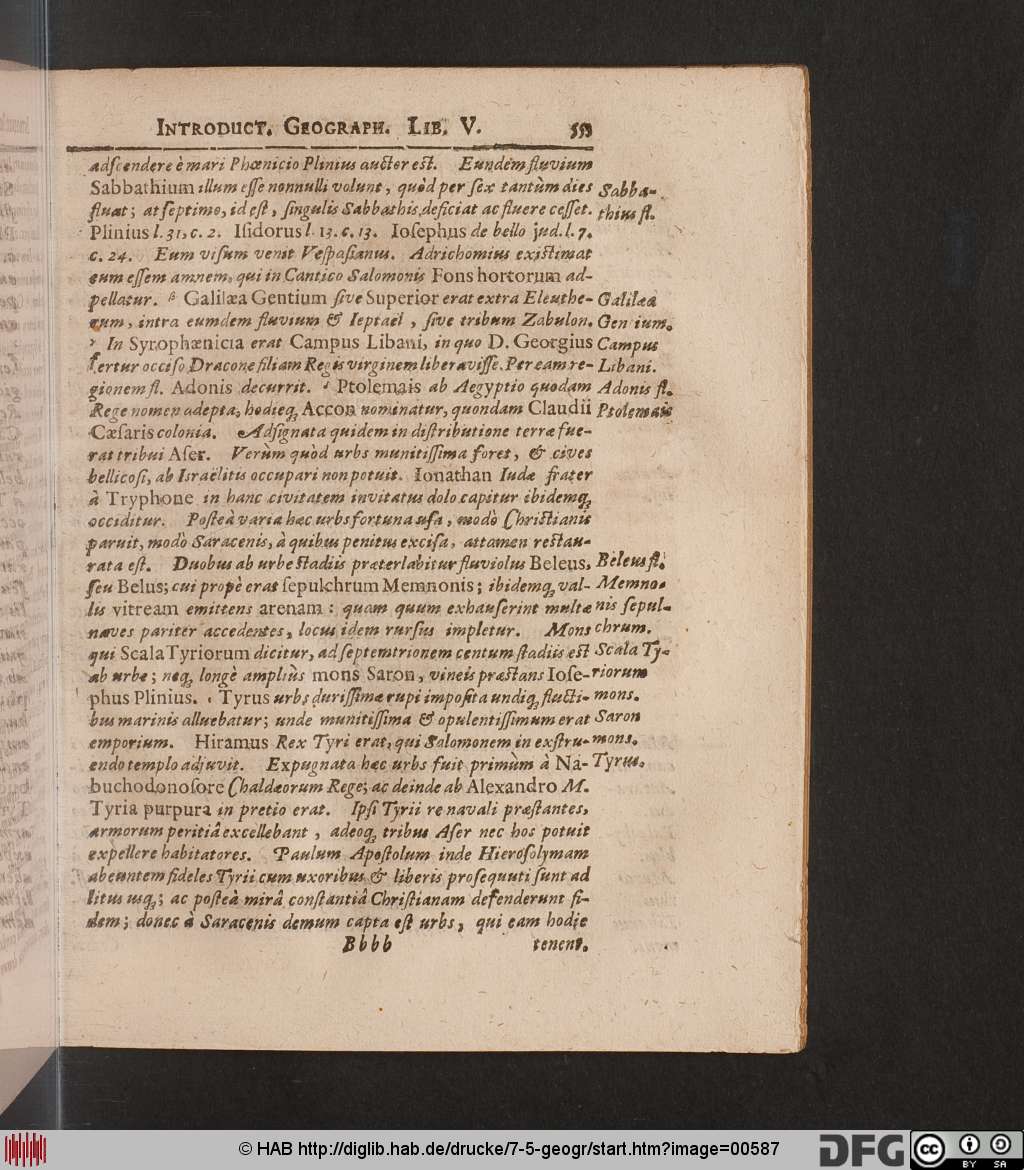 INTRODUCT. GEOGRAPH. LIB. V. 553
adſcendere è mari Phœnicio Plinius auctor est. Eundem fluvium
Sabbathium illum eſſe nonnulli volunt, quòd per ſex tantùm dies
fluat; at ſeptimo, id eſt, ſingulis Sabbathis, deficiat ac fluere ceſſet.
Plinius l. 31, c. 2. Iſidorus l. 13. c. 13. Ioſephus de bello jud. l. 7.
c. 24. Eum viſum venit Veſpaſianus. Adrichomius existimat
eum eſſem amnem, qui in Cantico Salomonis Fons hortorum ad-
pellatur. β Galilæa Gentium ſive Superior erat extra Eleuthe-
rum, intra eumdem fluvium & Ieptaël, ſive tribum Zabulon.
γ In Syrophœnicia erat Campus Libani, in quo D. Georgius
fertur occiſo Dracone filiam Regis virginem liberaviſſe. Per eam re-
gionem fl. Adonis decurrit. δ Ptolemais ab Aegyptio quodam
Rege nomen adepta, hodieq; Accon nominatur, quondam Claudii
Cæſaris colonia. Adſignata quidem in diſtributione terræ fue-
rat tribui Aſer. Verùm quòd urbs munitiſſima foret, & cives
bellicoſi, ab Israëlitis occupari non potuit. Ionathan Iudæ frater
à Tryphone in hanc civitatem invitatus dolo capitur ibidemq;
occiditur. Poſteà varia hæc urbs fortuna uſa, modò Chriſtianis
paruit, modò Saracenis, à quibus penitus exciſa, attamen restau-
rata eſt. Duobus ab urbe stadiis præterlabitur fluviolus Beleus,
ſeu Belus; cui propè erat ſepulchrum Memnonis; ibidemq; val-
lis vitream emittens arenam: quam quum exhauſerint multæ
naves pariter accedentes, locus idem rurſus impletur. Mons
qui Scala Tyriorum dicitur, ad ſeptemtrionem centum ſtadiis eſt
ab urbe; neq; longè ampliùs mons Saron, vineis præſtans Ioſe-
phus Plinius. ε Tyrus urbs duriſſimæ rupi impoſita undiq; flucti-
bus marinis alluebatur; unde munitiſſima & opulentiſſimum erat
emporium. Hiramus Rex Tyri erat, qui Salomonem in exſtru-
endo templo adjuvit. Expugnata hæc urbs fuit primùm à Na-
buchodonoſore Chaldæorum Rege; ac deinde ab Alexandro M.
Tyria purpura in pretio erat. Ipſi Tyrii re navali præſtantes,
armorum peritiâ excellebant, adeoq; tribus Aſer nec hos potuit
expellere habitatores. Paulum Apoſtolum inde Hieroſolymam
abeuntem fideles Tyrii cum uxoribus & liberis proſequuti ſunt ad
litus usq;; ac poſteà mirâ conſtantiâ Chriſtianam defenderunt fi-
dem; donec à Saracenis demum capta eſt urbs, qui eam hodie
Bbbb tenent.
Sabba-
thius fl.
Galilæa
Gentium.
Campus
Libani.
Adonis fl.
Ptolemais
Beleus fl.
Memno-
nis ſepul-
chrum.
Scala Ty-
riorum
mons.
Saron
mons.
Tyrus.
© HAB http://diglib.hab.de/drucke/7-5-geogr/start.htm?image=00587
DFG
cc BY SA